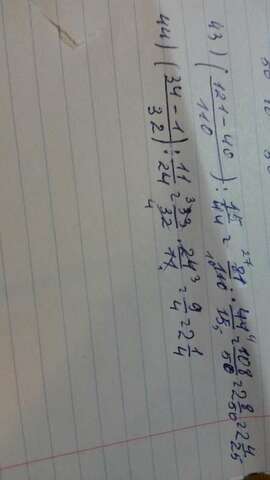 43) ((121-40)/110) : 15/44 = 81/110 · 44/15 = 108/50 = 2 8/50 = 2 4/25
44) ((34-1)/32) : 11/24 = 33/32 · 24/11 = 9/4 = 2 1/4